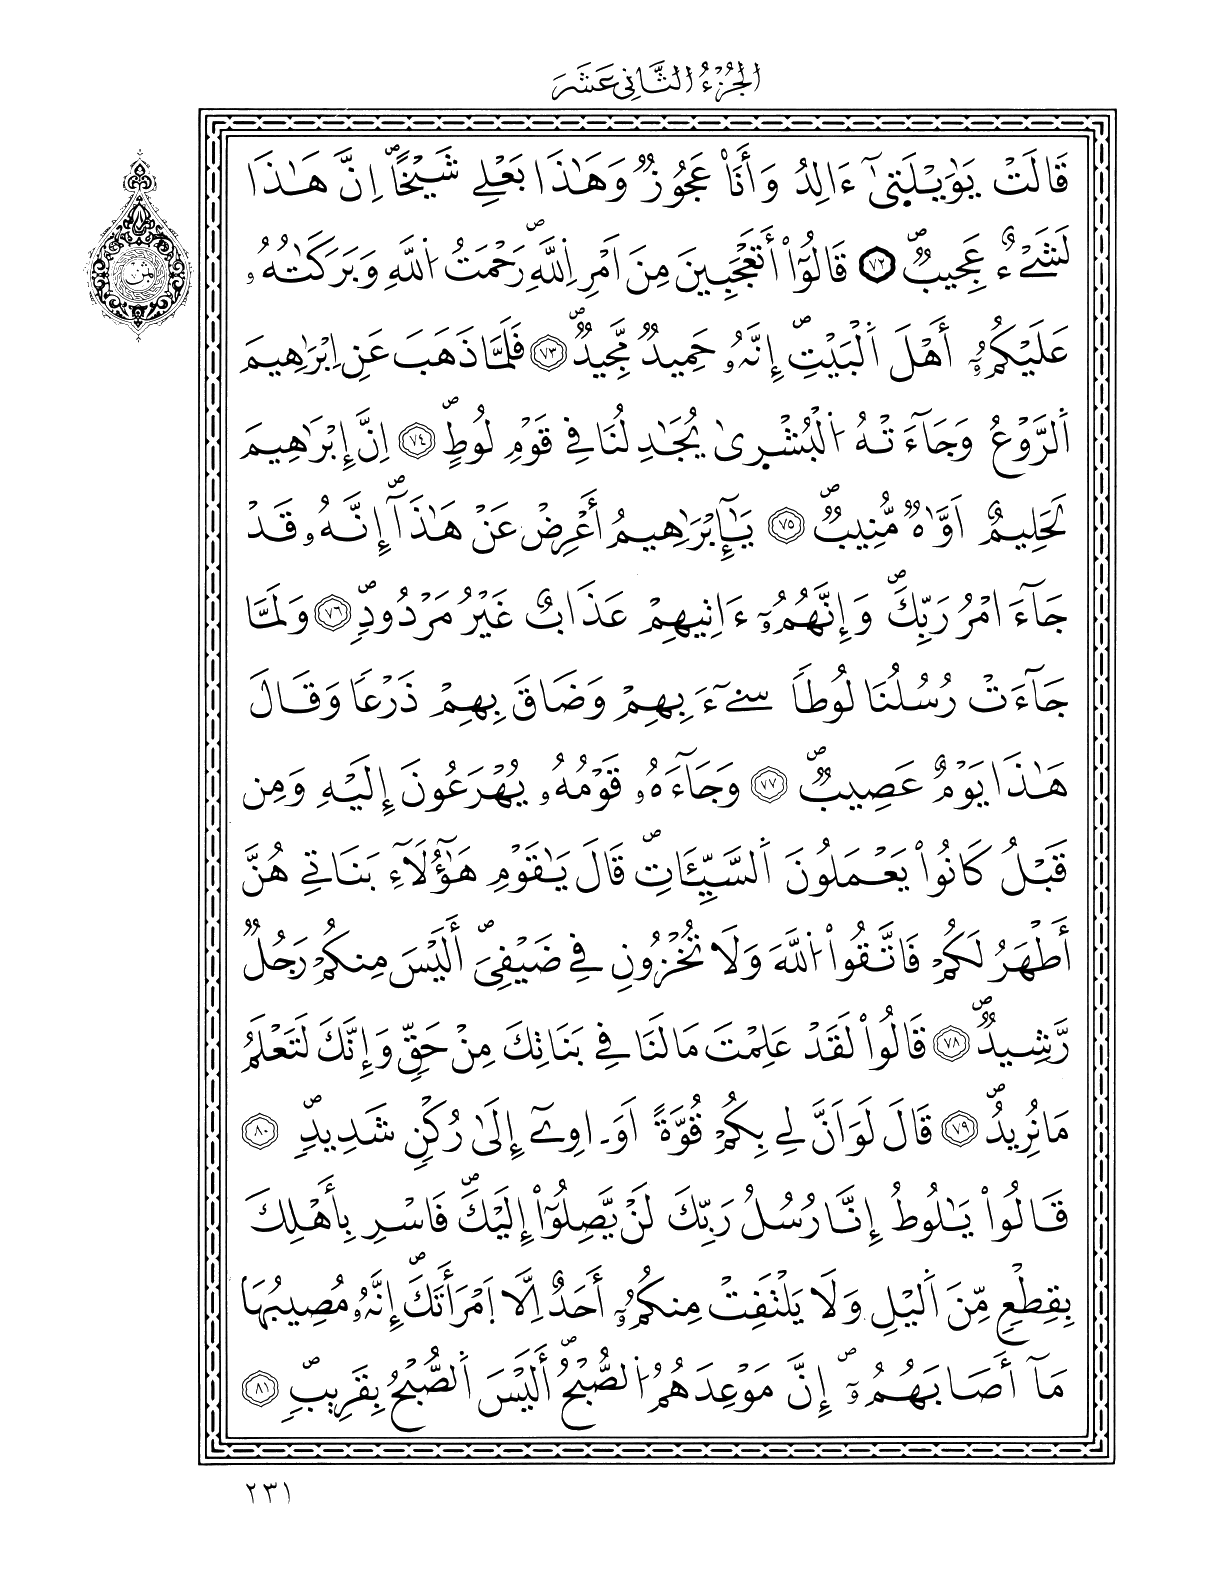 الجُزْءُ الثَّانِي عَشَرَ
قَالَتْ يَٰوَيْلَتَىٰٓ ءَالِدُ وَأَنَا۠ عَجُوزٞ وَهَٰذَا بَعْلِے شَيْخًاۖ اِنَّ هَٰذَا
لَشَےْءٌ عَجِيبٞۖ ٧٢ قَالُوٓاْ أَتَعْجَبِينَ مِنَ اَمْرِ اِ۬للَّهِۖ رَحْمَتُ اُ۬للَّهِ وَبَرَكَٰتُهُۥ
عَلَيْكُمُۥٓ أَهْلَ اَ۬لْبَيْتِۖ إِنَّهُۥ حَمِيدٞ مَّجِيدٞۖ ٧٣ فَلَمَّا ذَهَبَ عَنِ اِبْرَٰهِيمَ
اَ۬لرَّوْعُ وَجَآءَتْهُ اُ۬لْبُشْرِىٰ يُجَٰدِلُنَا فِي قَوْمِ لُوطٍۖ ٧٤ اِنَّ إِبْرَٰهِيمَ
لَحَلِيمٌ اَوَّٰهٞ مُّنِيبٞۖ ٧٥ يَٰٓإِبْرَٰهِيمُ أَعْرِضْ عَنْ هَٰذَآۖ إِنَّهُۥ قَدْ
جَآءَ امْرُ رَبِّكَۖ وَإِنَّهُمُۥٓ ءَاتِيهِمْ عَذَابٌ غَيْرُ مَرْدُودٖۖ ٧٦ وَلَمَّا
جَآءَتْ رُسُلُنَا لُوطاٗ سِےٓءَ بِهِمْ وَضَاقَ بِهِمْ ذَرْعاٗ وَقَالَ
هَٰذَا يَوْمٌ عَصِيبٞۖ ٧٧ وَجَآءَهُۥ قَوْمُهُۥ يُهْرَعُونَ إِلَيْهِ وَمِن
قَبْلُ كَانُواْ يَعْمَلُونَ اَ۬لسَّيِّـَٔاتِۖ قَالَ يَٰقَوْمِ هَٰٓؤُلَآءِ بَنَاتِي هُنَّ
أَطْهَرُ لَكُمْ فَاتَّقُواْ اُ۬للَّهَ وَلَا تُخْزُونِ فِي ضَيْفِيَۖ أَلَيْسَ مِنكُمْ رَجُلٞ
رَّشِيدٞۖ ٧٨ قَالُواْ لَقَدْ عَلِمْتَ مَا لَنَا فِي بَنَاتِكَ مِنْ حَقّٖ وَإِنَّكَ لَتَعْلَمُ
مَا نُرِيدُۖ ٧٩ قَالَ لَوَ اَنَّ لِي بِكُمْ قُوَّةً اَوَ ـ اوِےٓ إِلَىٰ رُكْنٖ شَدِيدٖۖ ٨٠
قَالُواْ يَٰلُوطُ إِنَّا رُسُلُ رَبِّكَ لَنْ يَّصِلُوٓاْ إِلَيْكَۖ فَاسْرِ بِأَهْلِكَ
بِقِطْعٖ مِّنَ اَ۬ليْلِ وَلَا يَلْتَفِتْ مِنكُمُۥٓ أَحَدٌ اِلَّا اَ۪مْرَأَتَكَۖ إِنَّهُۥ مُصِيبُهَا
مَآ أَصَابَهُمُۥٓۖ إِنَّ مَوْعِدَهُمُ اُ۬لصُّبْحُۖ أَلَيْسَ اَ۬لصُّبْحُ بِقَرِيبٖۖ ٨١
٢٣١